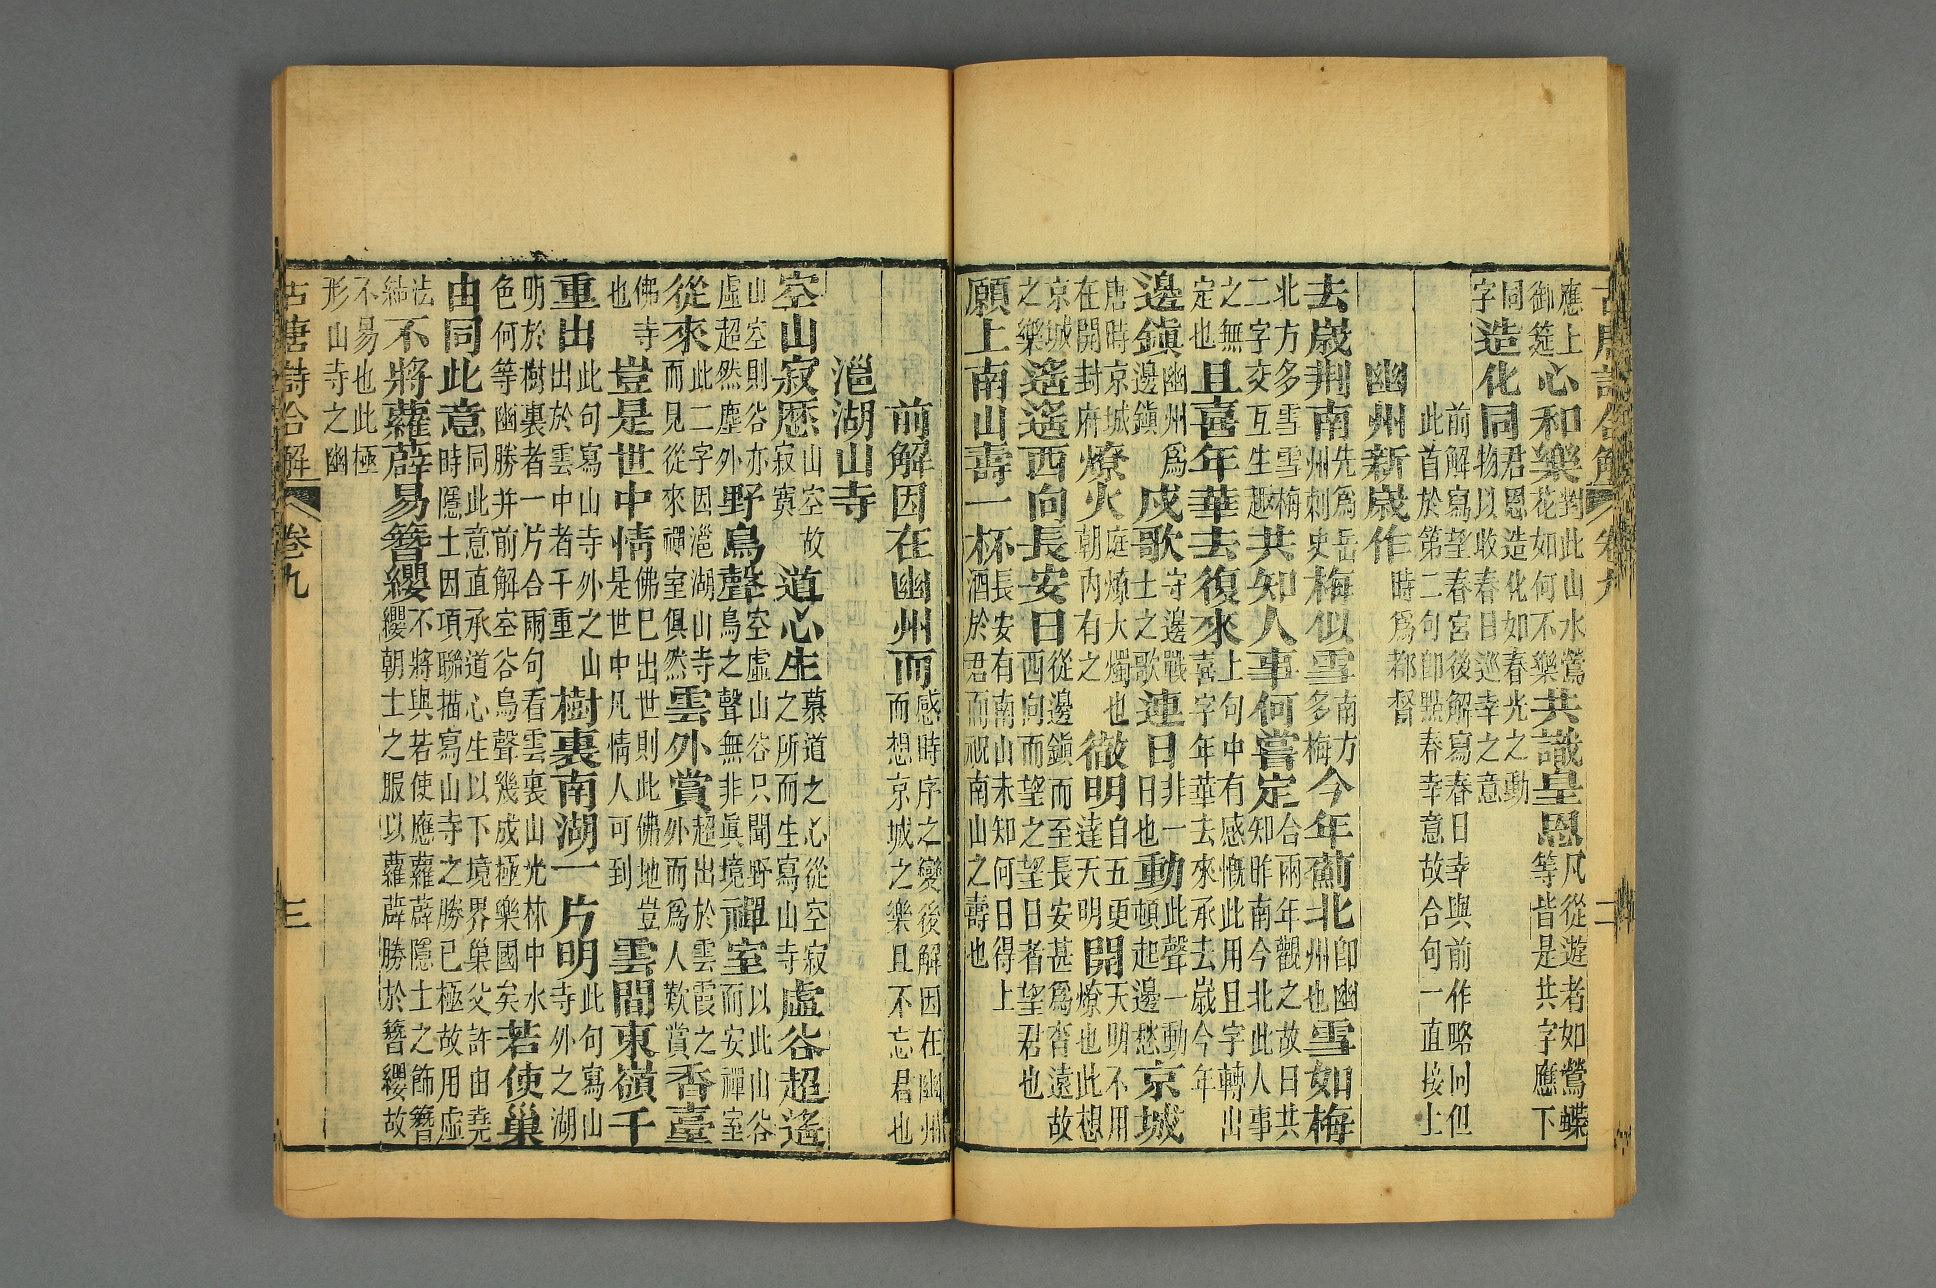 古唐詩合解 卷九 二
應上
御筵
心和樂
對此山水鶯
花如何不樂
共識皇恩
凡從遊者如鶯蝶
等皆是共字應下
同
字
造化同
君恩造化如春光之動
物以收春日巡幸之意
前解寫望春宮後解寫春日幸與前作略同但
此首於第二句卽點春幸意故合句一直接上
幽州新歲作
時為都督
去歲荆南
先為岳
州刺史
梅似雪
南方
多梅
今年薊北
卽幽
州也
雪如梅
北方多雪雪梅
二字交互生趣
共知人事何嘗定
合兩年觀之故曰共
知昨南今北此人事
之無
定也
且喜年華去復來
上句中有感慨此用且字轉出
喜字年華去來承去歲今年
邊鎮
幽州為
邊鎮
戍歌
守邊戰
士之歌
連日
非一
日也
動
此聲一動
頓起邊愁
京城
唐時京城
在開封府
燎火
庭燎大燭也
朝內有之
徹明
自五更
達天明
開
天明不用
燎也此想
京城
之樂
遙遙西向長安日
從邊鎮而至長安甚為杳遠故
西向而望之望日者望君也
願上南山壽一杯
長安有南山未知何日得上
酒於君而祝南山之壽也
前解因在幽州而
感時序之變後解因在幽州
而想京城之樂且不忘君也
㴩湖山寺
空山寂歷
山空故
寂寞
道心生
慕道之心從空寂
之所而生寫山寺
虛谷超遙
山空則谷亦
虛超然塵外
野鳥聲
空虛山谷只聞野
鳥之聲無非眞境
禪室
以此山谷
而安禪室
從來
此二字因㴩湖山寺
而見從來禪室俱然
雲外賞
超出於雲霞之
外而為人歎賞
香臺
佛寺
也
豈是世中情
佛巳出世則此佛地豈
是世中凡情人可到
雲間東嶺千
重出
此句寫山寺外之山
出於雲中者千重
樹裏南湖一片明
此句寫山
寺外之湖
明於樹裏者一片合兩句看雲裏山光林中水
色何等幽勝并前解空谷鳥聲幾成極樂國矣
若使巢
由同此意
同此意直承道心生以下境界巢父許由堯
時隱士因項聯描寫山寺之勝已極故用虛
法
結
不將蘿薜易簪纓
不將與若使應蘿薜隱士之飾簪
纓朝士之服以蘿薜勝於簪纓故
不易也此極
形山寺之幽
古唐詩合解 卷九 三